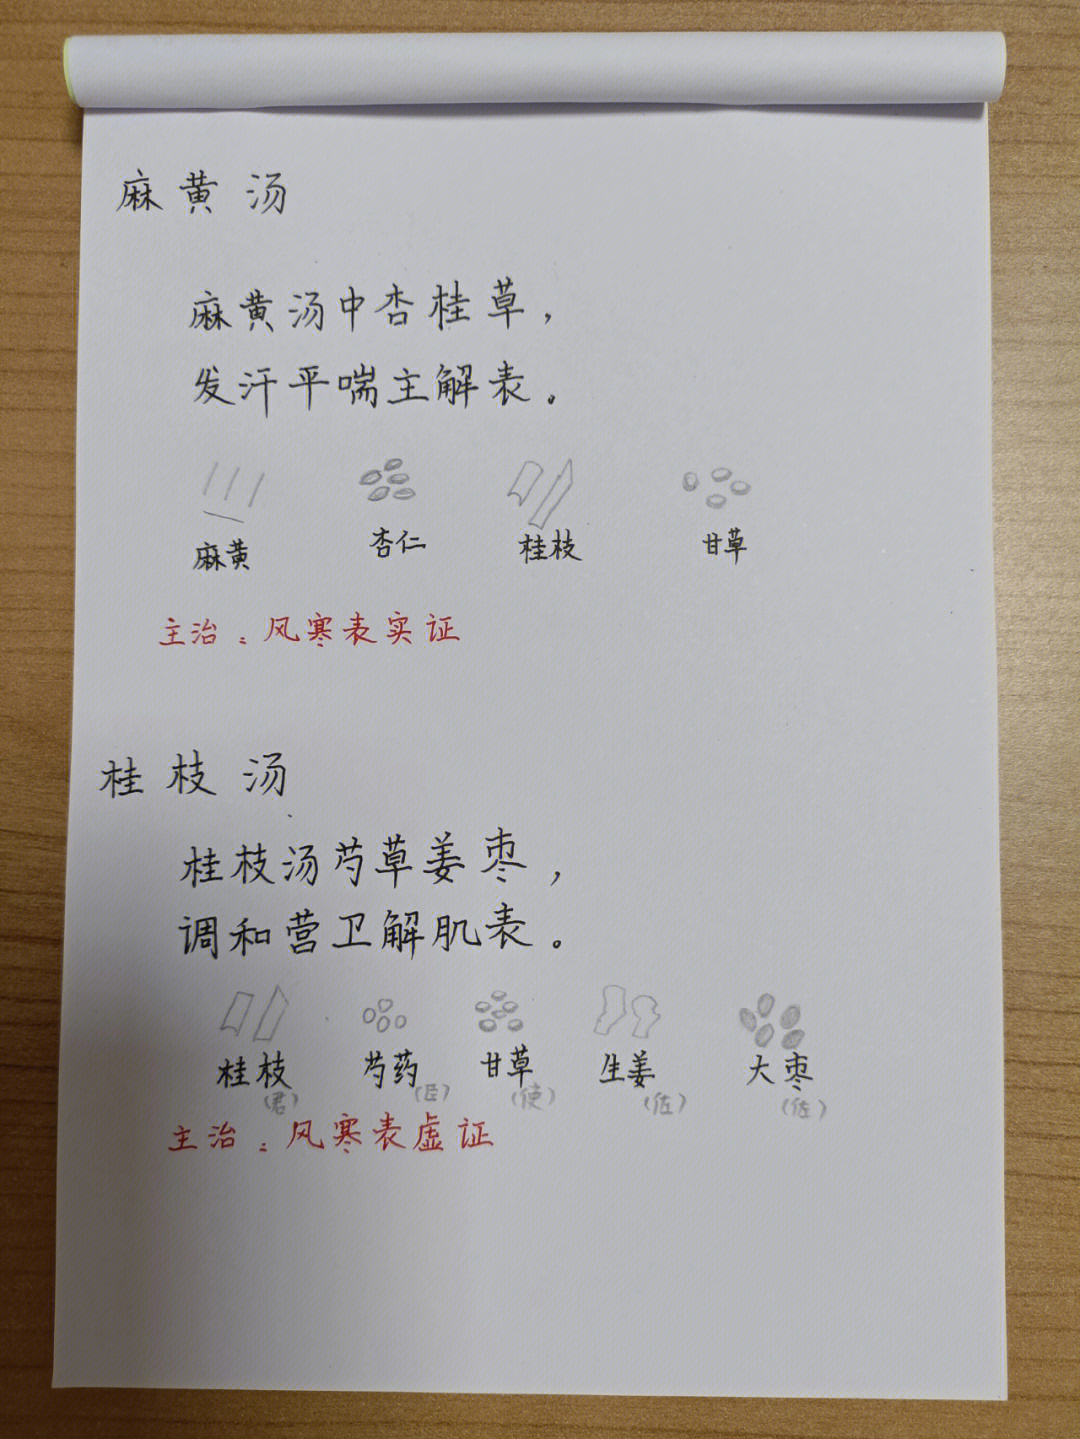 麻黄汤
麻黄汤中杏桂草，
发汗平喘主解表。
麻黄 杏仁 桂枝 甘草
主治：风寒表实证
桂枝汤
桂枝汤芍草姜枣，
调和营卫解肌表。
桂枝 芍药 甘草 生姜 大枣
（君） （臣） （使） （佐） （佐）
主治：风寒表虚证